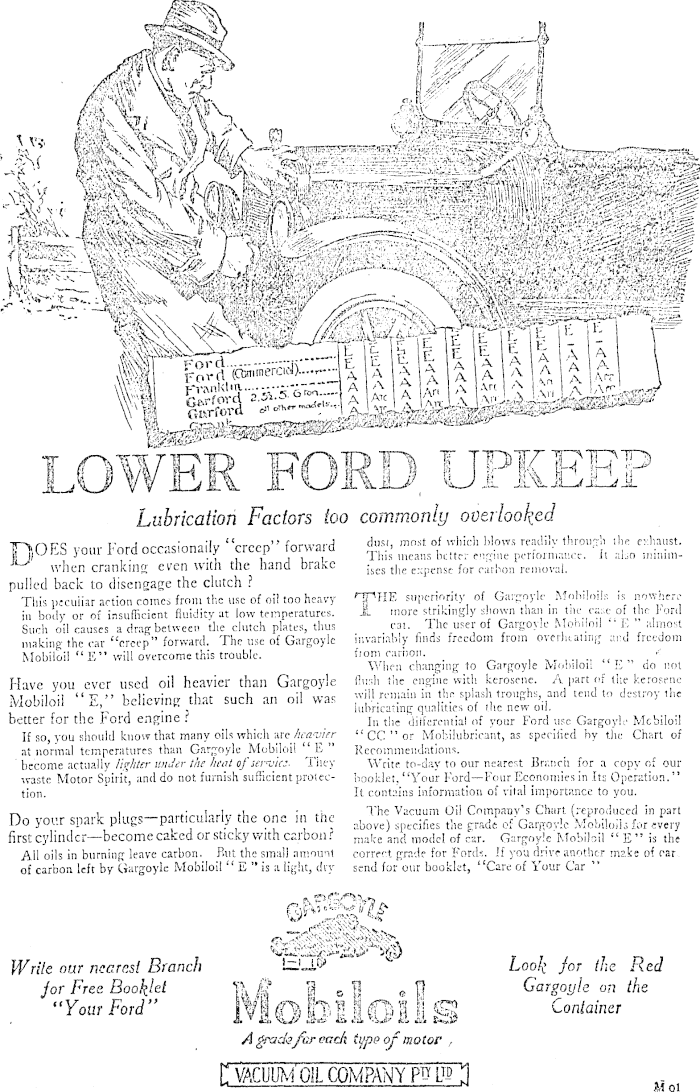 Ford
Ford (Commercial)
Franklin
Garford 2.3½.5. 6 ton
Garford all other models
LOWER FORD UPKEEP
Lubrication Factors too commonly overlooked
DOES your Ford occasionally "creep" forward
when cranking even with the hand brake
pulled back to disengage the clutch?
This peculiar action comes from the use of oil too heavy
in body or of insufficient fluidity at low temperatures.
Such oil causes a drag between the clutch plates, thus
making the car "creep" forward. The use of Gargoyle
Mobiloil "E" will overcome this trouble.
Have you ever used oil heavier than Gargoyle
Mobiloil "E," believing that such an oil was
better for the Ford engine?
If so, you should know that many oils which are heavier
at normal temperatures than Gargoyle Mobiloil "E"
become actually lighter under the heat of service. They
waste Motor Spirit, and do not furnish sufficient protec-
tion.
Do your spark plugs—particularly the one in the
first cylinder—become caked or sticky with carbon?
All oils in burning leave carbon. But the small amount
of carbon left by Gargoyle Mobiloil "E" is a light, dry
dust, most of which blows readily through the exhaust.
This means better engine performance. It also minim-
ises the expense for carbon removal.
THE superiority of Gargoyle Mobiloils is nowhere
more strikingly shown than in the case of the Ford
car. The user of Gargoyle Mobiloil "E" almost
invariably finds freedom from overheating and freedom
from carbon.
When changing to Gargoyle Mobiloil "E" do not
flush the engine with kerosene. A part of the kerosene
will remain in the splash troughs, and tend to destroy the
lubricating qualities of the new oil.
In the differential of your Ford use Gargoyle Mobiloil
"CC" or Mobilubricant, as specified by the Chart of
Recommendations.
Write to-day to our nearest Branch for a copy of our
booklet, "Your Ford—Four Economies in Its Operation."
It contains information of vital importance to you.
The Vacuum Oil Company's Chart (reproduced in part
above) specifies the grade of Gargoyle Mobiloils for every
make and model of car. Gargoyle Mobiloil "E" is the
correct grade for Fords. If you drive another make of car
send for our booklet, "Care of Your Car"
Write our nearest Branch
for Free Booklet
"Your Ford"
GARGOYLE
Mobiloils
A grade for each type of motor
Look for the Red
Gargoyle on the
Container
VACUUM OIL COMPANY PTY LTD
M 01